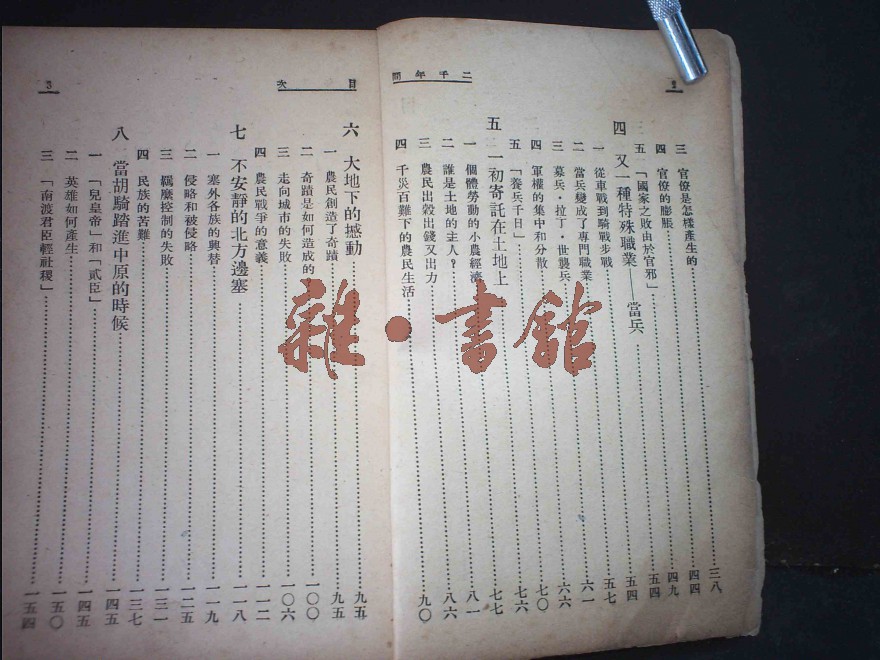 二千年間
2
三 官僚是怎樣產生的……三八
四 官僚的膨脹……四四
五 「國家之敗由於官邪」……四九
四 又一種特殊職業——當兵……五四
一 從車戰到騎戰步戰……五四
二 當兵變成了專門職業……五七
三 募兵・拉丁・世襲兵……六一
四 軍權的集中和分散……六六
五 「養兵千日」……七〇
五 一初寄託在土地上……七六
一 個體勞動的小農經濟……七七
二 誰是土地的主人？……八一
三 農民出穀出錢又出力……八六
四 千災百難下的農民生活……九〇
目次
3
六 大地下的撼動……九五
一 農民創造了奇蹟……九五
二 奇蹟是如何造成的……一〇〇
三 走向城市的失敗……一〇六
四 農民戰爭的意義……一一二
七 不安靜的北方邊塞……一一八
一 塞外各族的興替……一一九
二 侵略和被侵略……一二五
三 羈縻控制的失敗……一三一
四 民族的苦難……一三七
八 當胡騎踏進中原的時候……一四五
一 「兒皇帝」和「貳臣」……一四五
二 英雄如何產生……一五〇
三 「南渡君臣輕社稷」……一五四
雜・書館